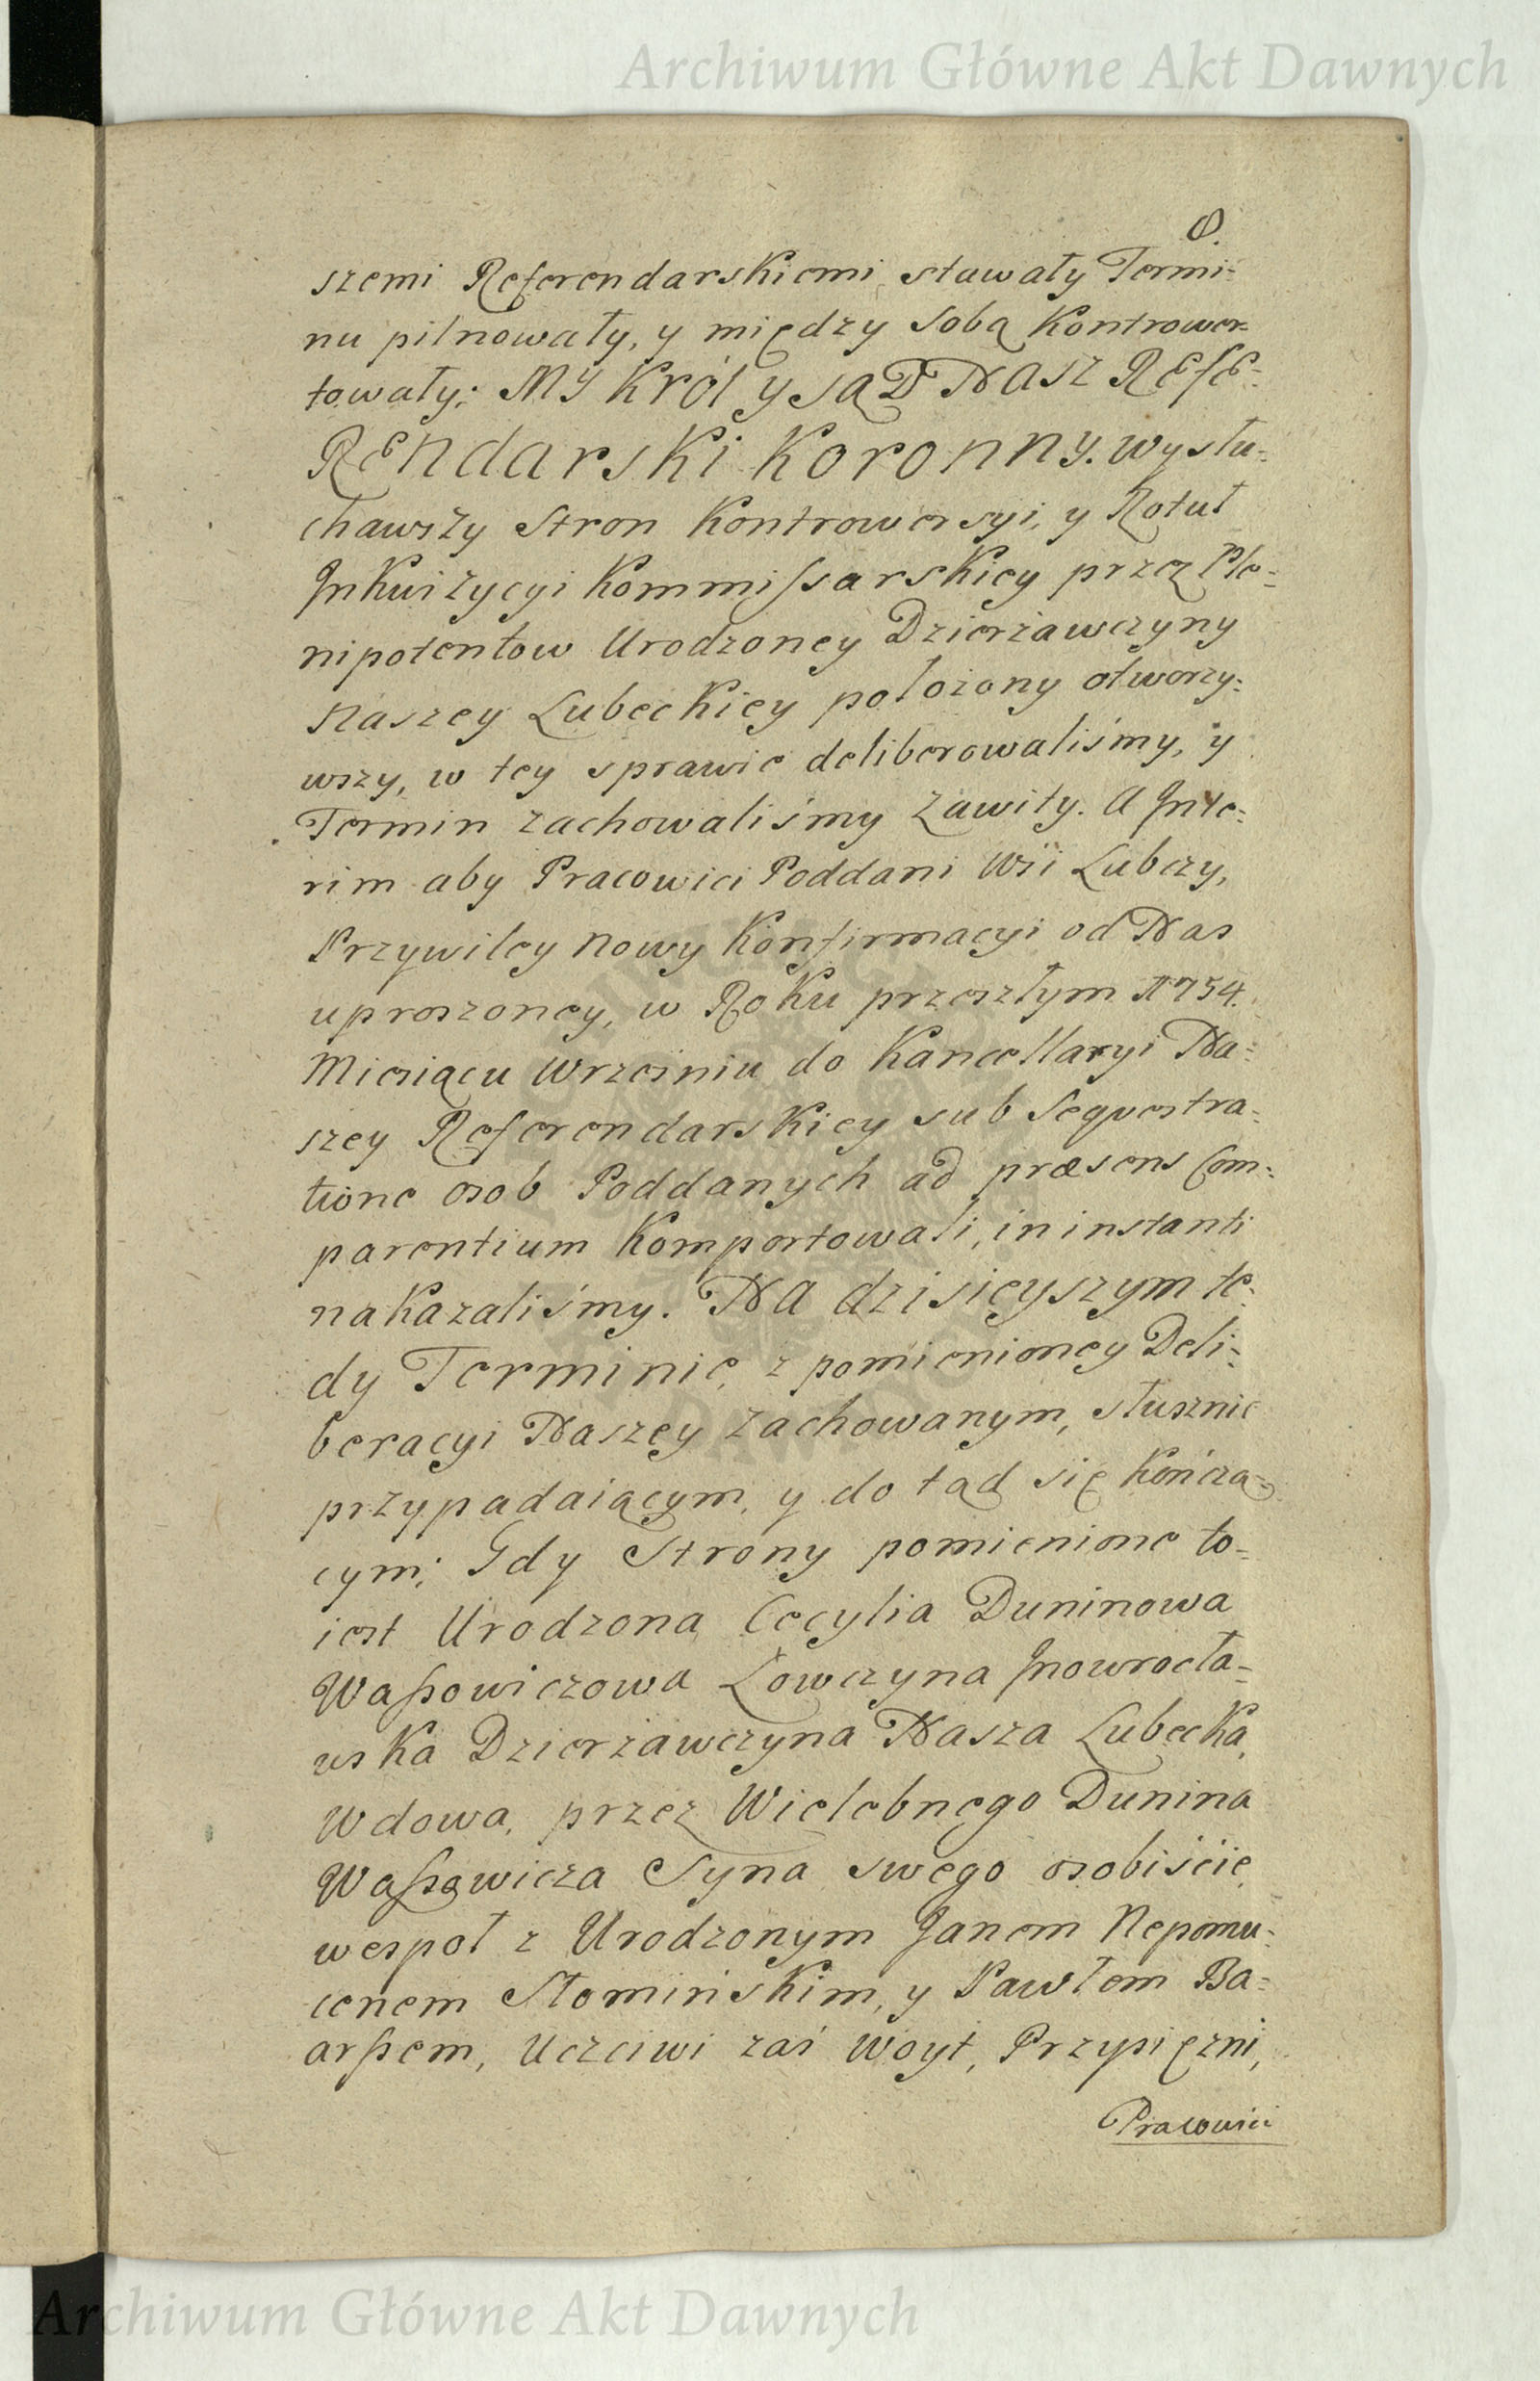 Archiwum Główne Akt Dawnych
8.
szemi Referendarskiemi stawały Termi=
nu pilnowały, y między sobą Kontrower=
towały; MY KRÓL y SĄD NASZ REFE=
RENDARSKI KORONNY. wysłu=
chawszy Stron Kontrowersyi, y Rotuł
Inkwizycyi Kommissarskiey przez Ple=
nipotentow Urodzoney Dzierżawczyny
Naszey Lubeckiey położony otworzy=
wszy, w tey sprawie deliberowaliśmy, y
Termin zachowaliśmy zawity. A Inte=
rim aby Pracowici Poddani Wsi Lubczy,
Przywiley nowy Konfirmacyi od Nas
uproszoney, w Roku przeszłym 1754.
Miesiącu Wrześniu do Kancellaryi Na=
szey Referendarskiey sub Sequestra=
tione osob Poddanych ad præsens Com=
parentium Komportowali, in instanti
nakazaliśmy. NA dzisieyszym te=
dy Terminie, z pomienioney Deli=
beracyi Naszey zachowanym, słusznie
przypadaiącym, y do tąd się kończą=
cym; Gdy Strony pomienione to=
iest Urodzona Cecylia Duninowa
Wąsowiczowa Łowczyna Inowrocła=
wska Dzierżawczyna Nasza Lubecka,
Wdowa, przez Wielebnego Dunina
Wąsowicza Syna swego osobiście
wespoł z Urodzonym Janem Nepomu=
cenem Słomińskim, y Pawłem Ba=
arssem, Uczciwi zaś Woyt, Przysiężni,
Pracowici
Archiwum Główne Akt Dawnych